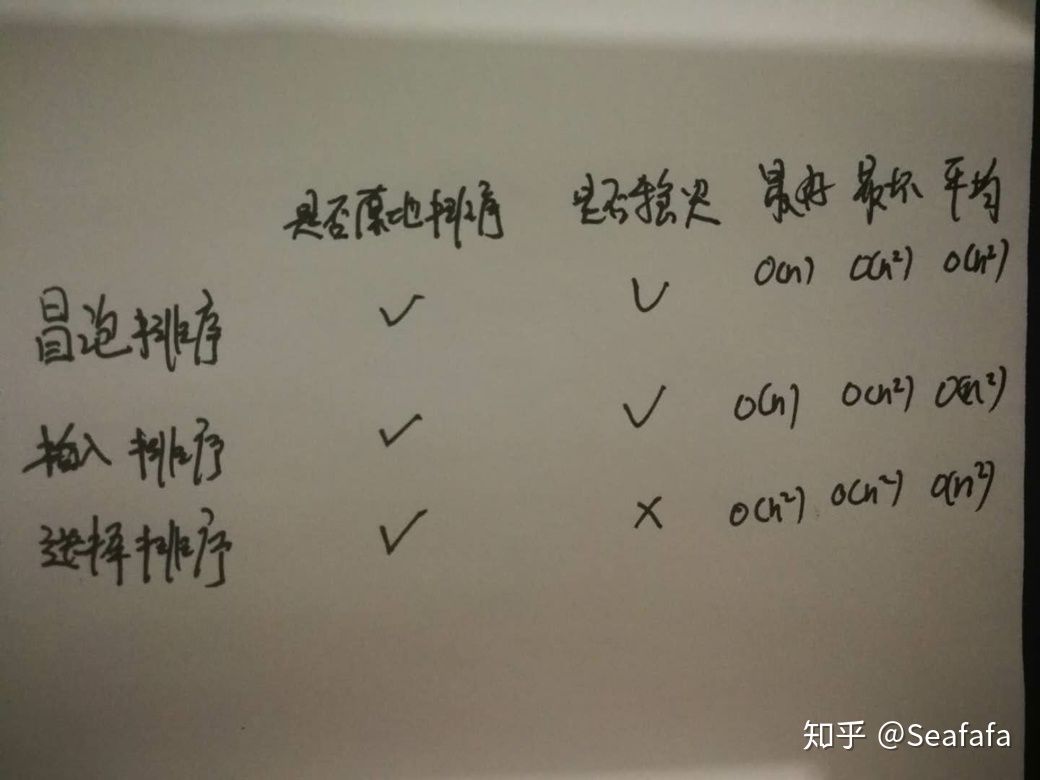 是否原地排序 是否稳定 最好 最坏 平均
冒泡排序 ✓ ✓ O(n) O(n²) O(n²)
插入排序 ✓ ✓ O(n) O(n²) O(n²)
选择排序 ✓ × O(n²) O(n²) O(n²)
知乎 @Seafafa